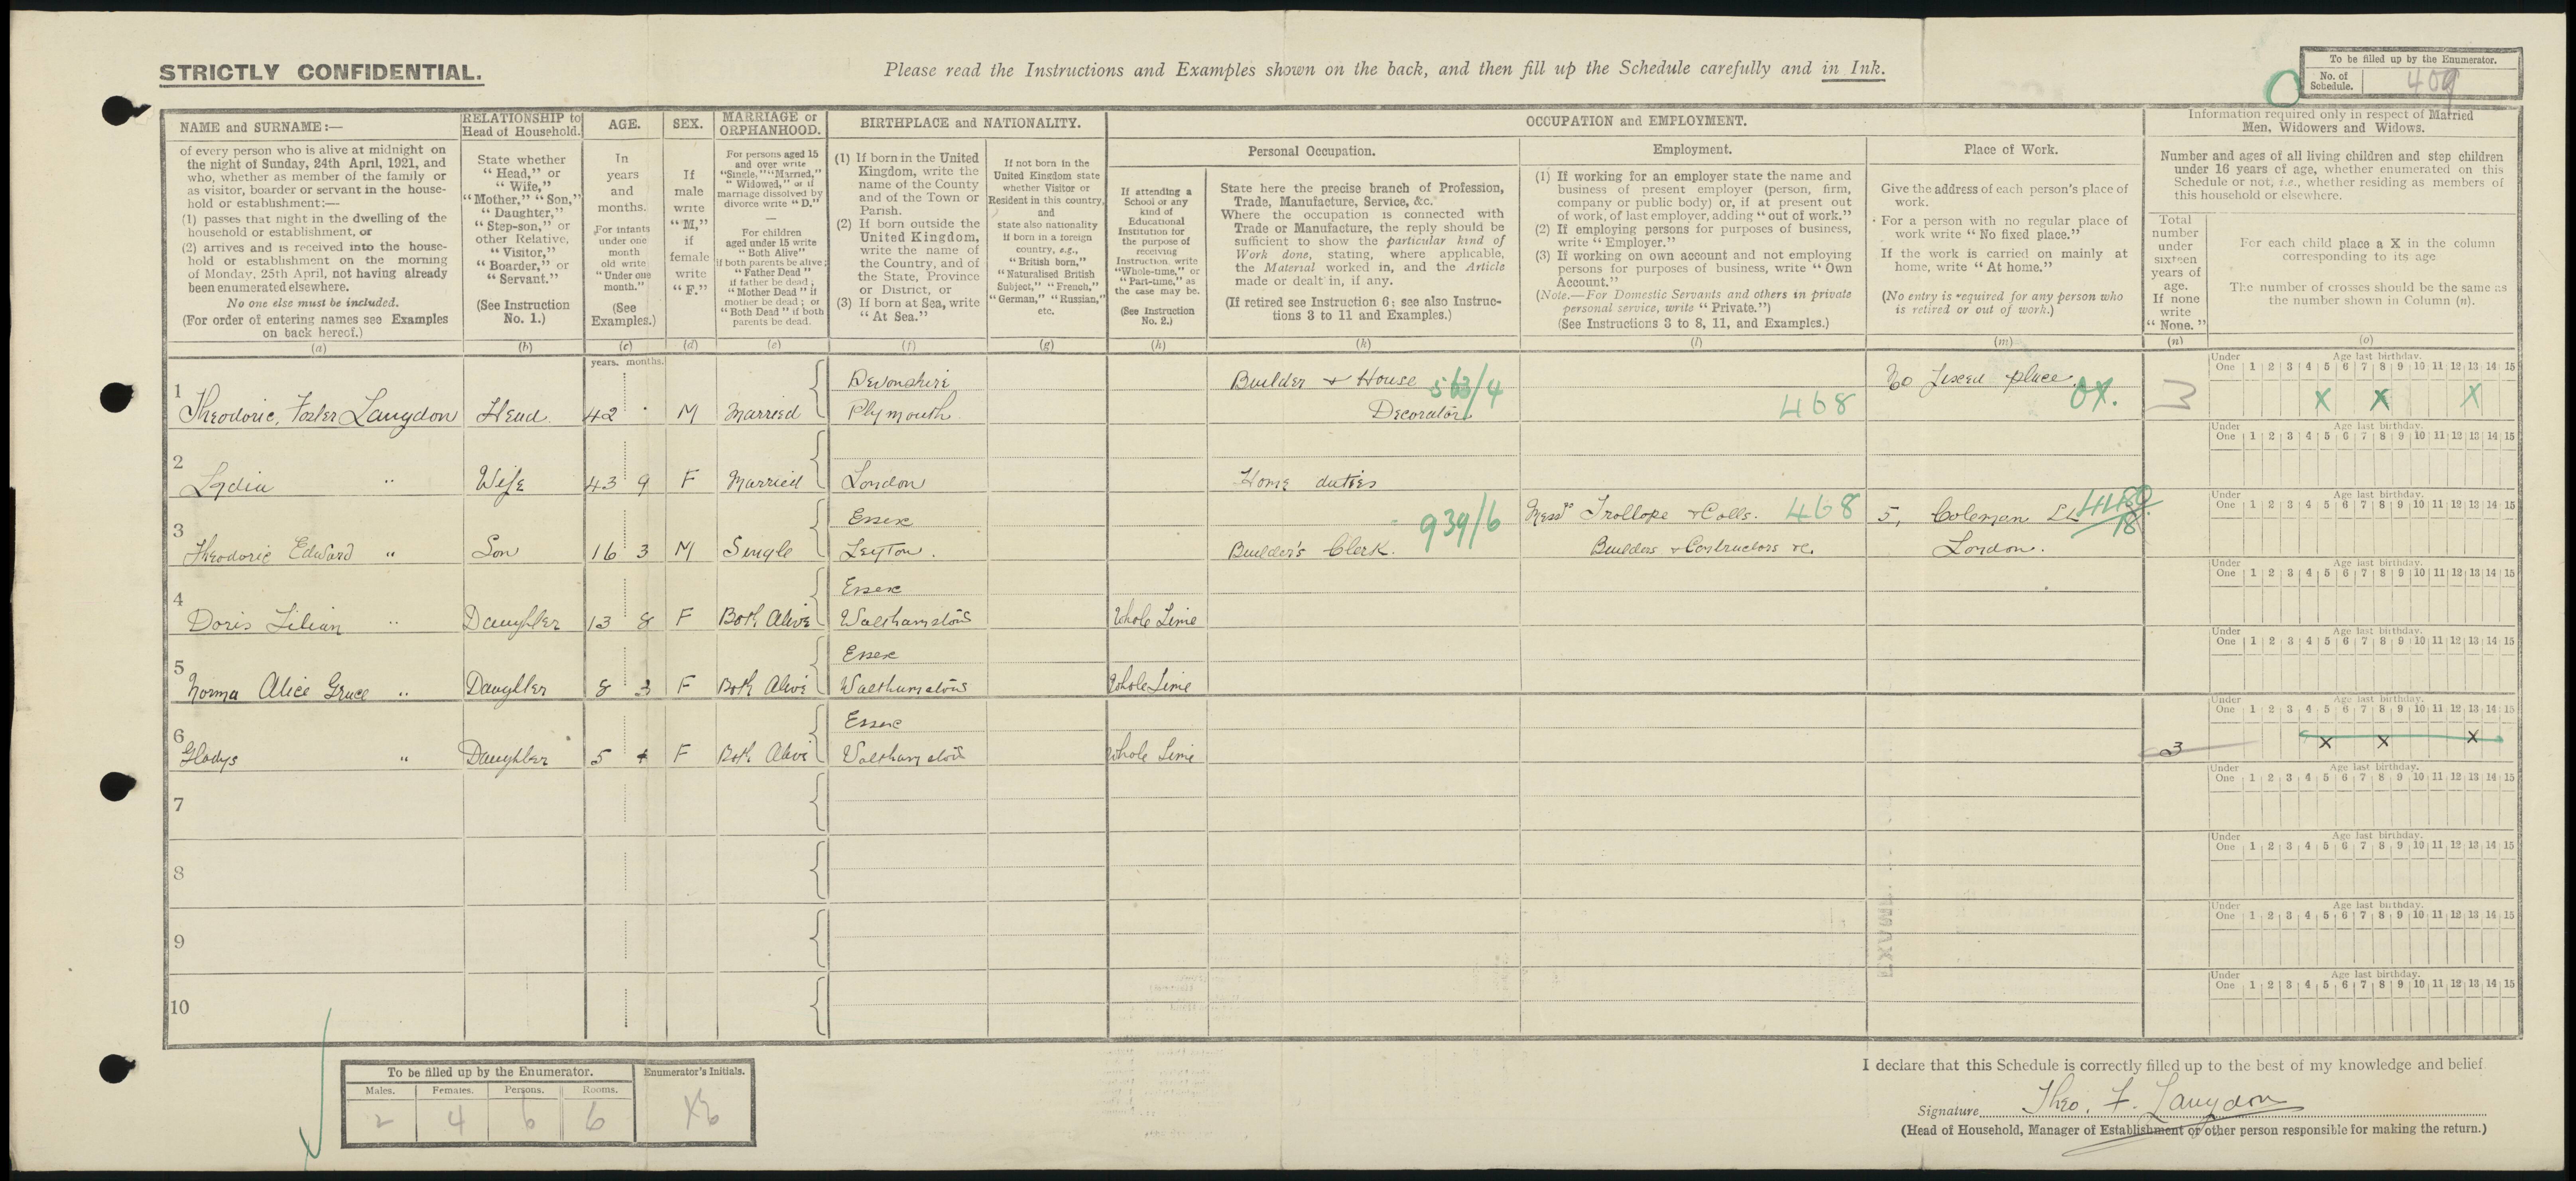 STRICTLY CONFIDENTIAL.
Please read the Instructions and Examples shown on the back, and then fill up the Schedule carefully and in Ink.
To be filled up by the Enumerator.
No. of Schedule. 409
NAME and SURNAME:—
of every person who is alive at midnight on
the night of Sunday, 24th April, 1921, and
who, whether as member of the family or
as visitor, boarder or servant in the house-
hold or establishment:—
(1) passes that night in the dwelling of the
household or establishment, or
(2) arrives and is received into the house-
hold or establishment on the morning
of Monday, 25th April, not having already
been enumerated elsewhere.
No one else must be included.
(For order of entering names see Examples
on back hereof.)
(a)
RELATIONSHIP to
Head of Household.
State whether
"Head," or
"Wife,"
"Mother," "Son,"
"Daughter,"
"Step-son," or
other Relative,
"Visitor,"
"Boarder," or
"Servant."
(See Instruction
No. 1.)
(b)
AGE.
In
years
and
months.
For infants
under one
month
old write
"Under one
month."
(See
Examples.)
(c)
SEX.
If
male
write
"M,"
if
female
write
"F."
(d)
MARRIAGE or
ORPHANHOOD.
For persons aged 15
and over write
"Single," "Married,"
"Widowed," or if
marriage dissolved by
divorce write "D."
—
For children
aged under 15 write
"Both Alive"
if both parents be alive;
"Father Dead"
if father be dead;
"Mother Dead" if
mother be dead; or
"Both Dead" if both
parents be dead.
(e)
BIRTHPLACE and NATIONALITY.
(1) If born in the United
Kingdom, write the
name of the County
and of the Town or
Parish.
(2) If born outside the
United Kingdom,
write the name of
the Country, and of
the State, Province
or District, or
(3) If born at Sea, write
"At Sea."
(f)
If not born in the
United Kingdom state
whether Visitor or
Resident in this country,
and
state also nationality
if born in a foreign
country, e.g.,
"British born,"
"Naturalised British
Subject," "French,"
"German," "Russian,"
etc.
(g)
OCCUPATION and EMPLOYMENT.
Personal Occupation.
If attending a
School or any
kind of
Educational
Institution for
the purpose of
receiving
Instruction, write
"Whole-time," or
"Part-time," as
the case may be.
(See Instruction
No. 2.)
(h)
State here the precise branch of Profession,
Trade, Manufacture, Service, &c.
Where the occupation is connected with
Trade or Manufacture, the reply should be
sufficient to show the particular kind of
Work done, stating, where applicable,
the Material worked in, and the Article
made or dealt in, if any.
(If retired see Instruction 6; see also Instruc-
tions 3 to 11 and Examples.)
(k)
Employment.
(1) If working for an employer state the name and
business of present employer (person, firm,
company or public body) or, if at present out
of work, of last employer, adding "out of work."
(2) If employing persons for purposes of business,
write "Employer."
(3) If working on own account and not employing
persons for purposes of business, write "Own
Account."
(Note.—For Domestic Servants and others in private
personal service, write "Private.")
(See Instructions 3 to 8, 11, and Examples.)
(l)
Place of Work.
Give the address of each person's place of
work.
For a person with no regular place of
work write "No fixed place."
If the work is carried on mainly at
home, write "At home."
(No entry is required for any person who
is retired or out of work.)
(m)
Information required only in respect of Married
Men, Widowers and Widows.
Number and ages of all living children and step children
under 16 years of age, whether enumerated on this
Schedule or not, i.e., whether residing as members of
this household or elsewhere.
Total
number
under
sixteen
years of
age.
If none
write
"None."
(n)
For each child place a X in the column
corresponding to its age
The number of crosses should be the same as
the number shown in Column (n).
(o)
years. months.
Under One Age last birthday. 1 2 3 4 5 6 7 8 9 10 11 12 13 14 15
1 Theodoric Foster Langdon Head 42 M Married Devonshire Plymouth Builder & House Decorator 563/4 468 No fixed place OX. 3 X X X
Under One Age last birthday. 1 2 3 4 5 6 7 8 9 10 11 12 13 14 15
2 Lydia " Wife 43 9 F Married London Home duties
Under One Age last birthday. 1 2 3 4 5 6 7 8 9 10 11 12 13 14 15
3 Theodoric Edward " Son 16 3 M Single Essex Leyton. Builder's Clerk. 939/6 Messrs Trollope & Colls. 468 Builders & Contractors &c. 5, Coleman St London.
Under One Age last birthday. 1 2 3 4 5 6 7 8 9 10 11 12 13 14 15
4 Doris Lilian " Daughter 13 8 F Both Alive Essex Walthamstow Whole Time
Under One Age last birthday. 1 2 3 4 5 6 7 8 9 10 11 12 13 14 15
5 Norma Alice Grace " Daughter 8 3 F Both Alive Essex Walthamstow Whole Time
Under One Age last birthday. 1 2 3 4 5 6 7 8 9 10 11 12 13 14 15
6 Gladys " Daughter 5 4 F Both Alive Essex Walthamstow Whole Time 3 X X X
Under One Age last birthday. 1 2 3 4 5 6 7 8 9 10 11 12 13 14 15
7
Under One Age last birthday. 1 2 3 4 5 6 7 8 9 10 11 12 13 14 15
8
Under One Age last birthday. 1 2 3 4 5 6 7 8 9 10 11 12 13 14 15
9
Under One Age last birthday. 1 2 3 4 5 6 7 8 9 10 11 12 13 14 15
10
To be filled up by the Enumerator.
Enumerator's Initials.
Males. Females. Persons. Rooms.
2 4 6 6
I declare that this Schedule is correctly filled up to the best of my knowledge and belief
Signature Theo. F. Langdon
(Head of Household, Manager of Establishment or other person responsible for making the return.)